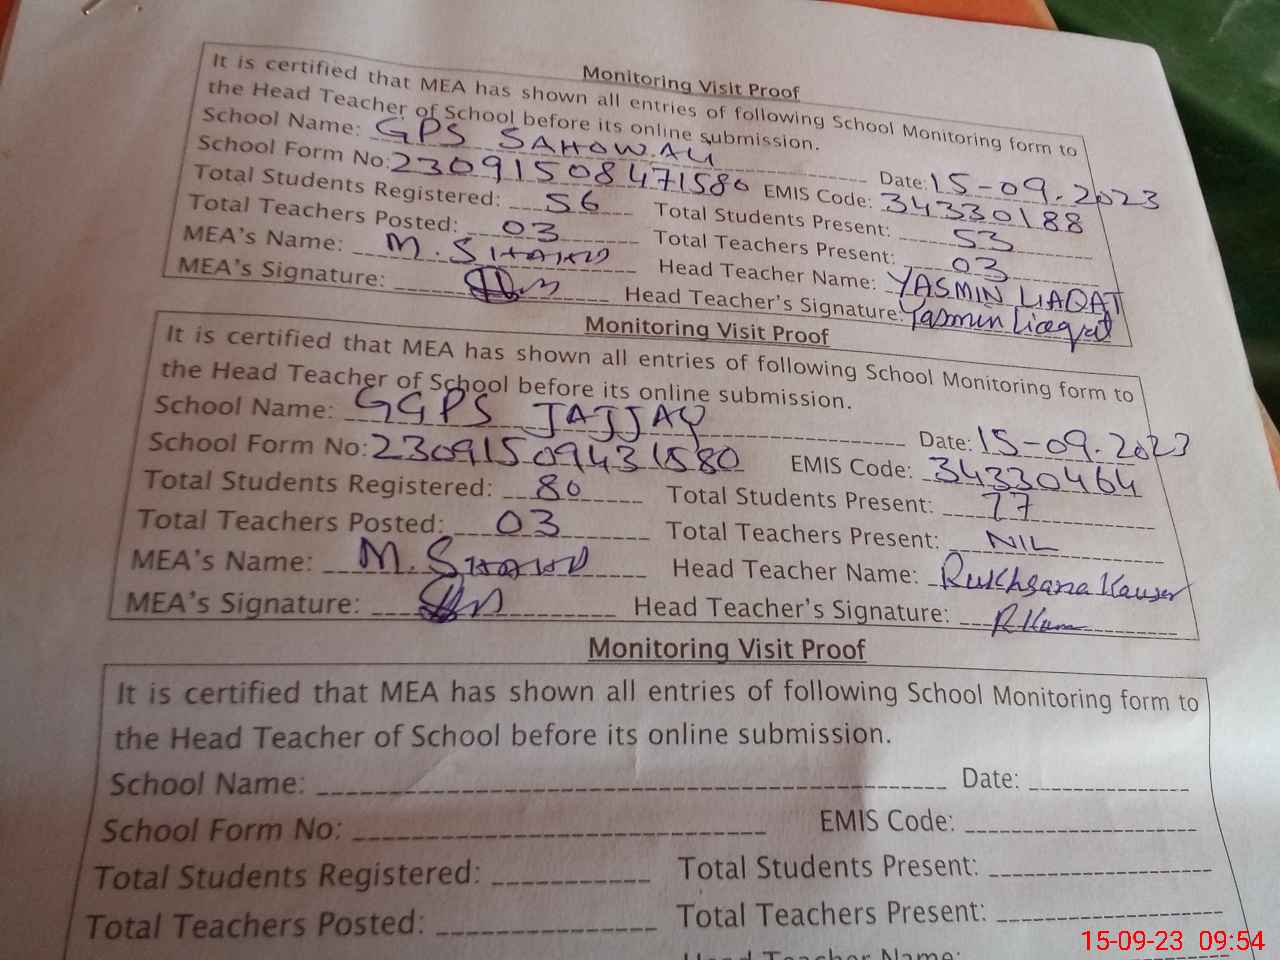 Monitoring Visit Proof
It is certified that MEA has shown all entries of following School Monitoring form to
the Head Teacher of School before its online submission.
School Name: GPS SAHOWALI Date: 15-09.2023
School Form No: 23091508471580 EMIS Code: 34330188
Total Students Registered: 56 Total Students Present: 53
Total Teachers Posted: 03 Total Teachers Present: 03
MEA's Name: M. SHAHID Head Teacher Name: YASMIN LIAQAT
MEA's Signature: Head Teacher's Signature: Yasmin Liaqat
Monitoring Visit Proof
It is certified that MEA has shown all entries of following School Monitoring form to
the Head Teacher of School before its online submission.
School Name: GGPS JAJJAY Date: 15-09.2023
School Form No: 230915094431580 EMIS Code: 34330464
Total Students Registered: 80 Total Students Present: 77
Total Teachers Posted: 03 Total Teachers Present: NIL
MEA's Name: M. SHAHID Head Teacher Name: Rukhsana Kauser
MEA's Signature: Head Teacher's Signature:
Monitoring Visit Proof
It is certified that MEA has shown all entries of following School Monitoring form to
the Head Teacher of School before its online submission.
School Name: Date:
School Form No: EMIS Code:
Total Students Registered: Total Students Present:
Total Teachers Posted: Total Teachers Present:
Head Teacher Name:
15-09-23 09:54